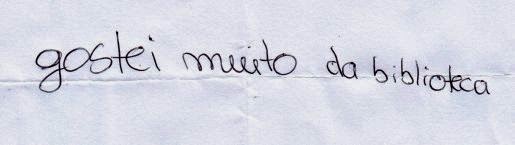 gostei muito da biblioteca